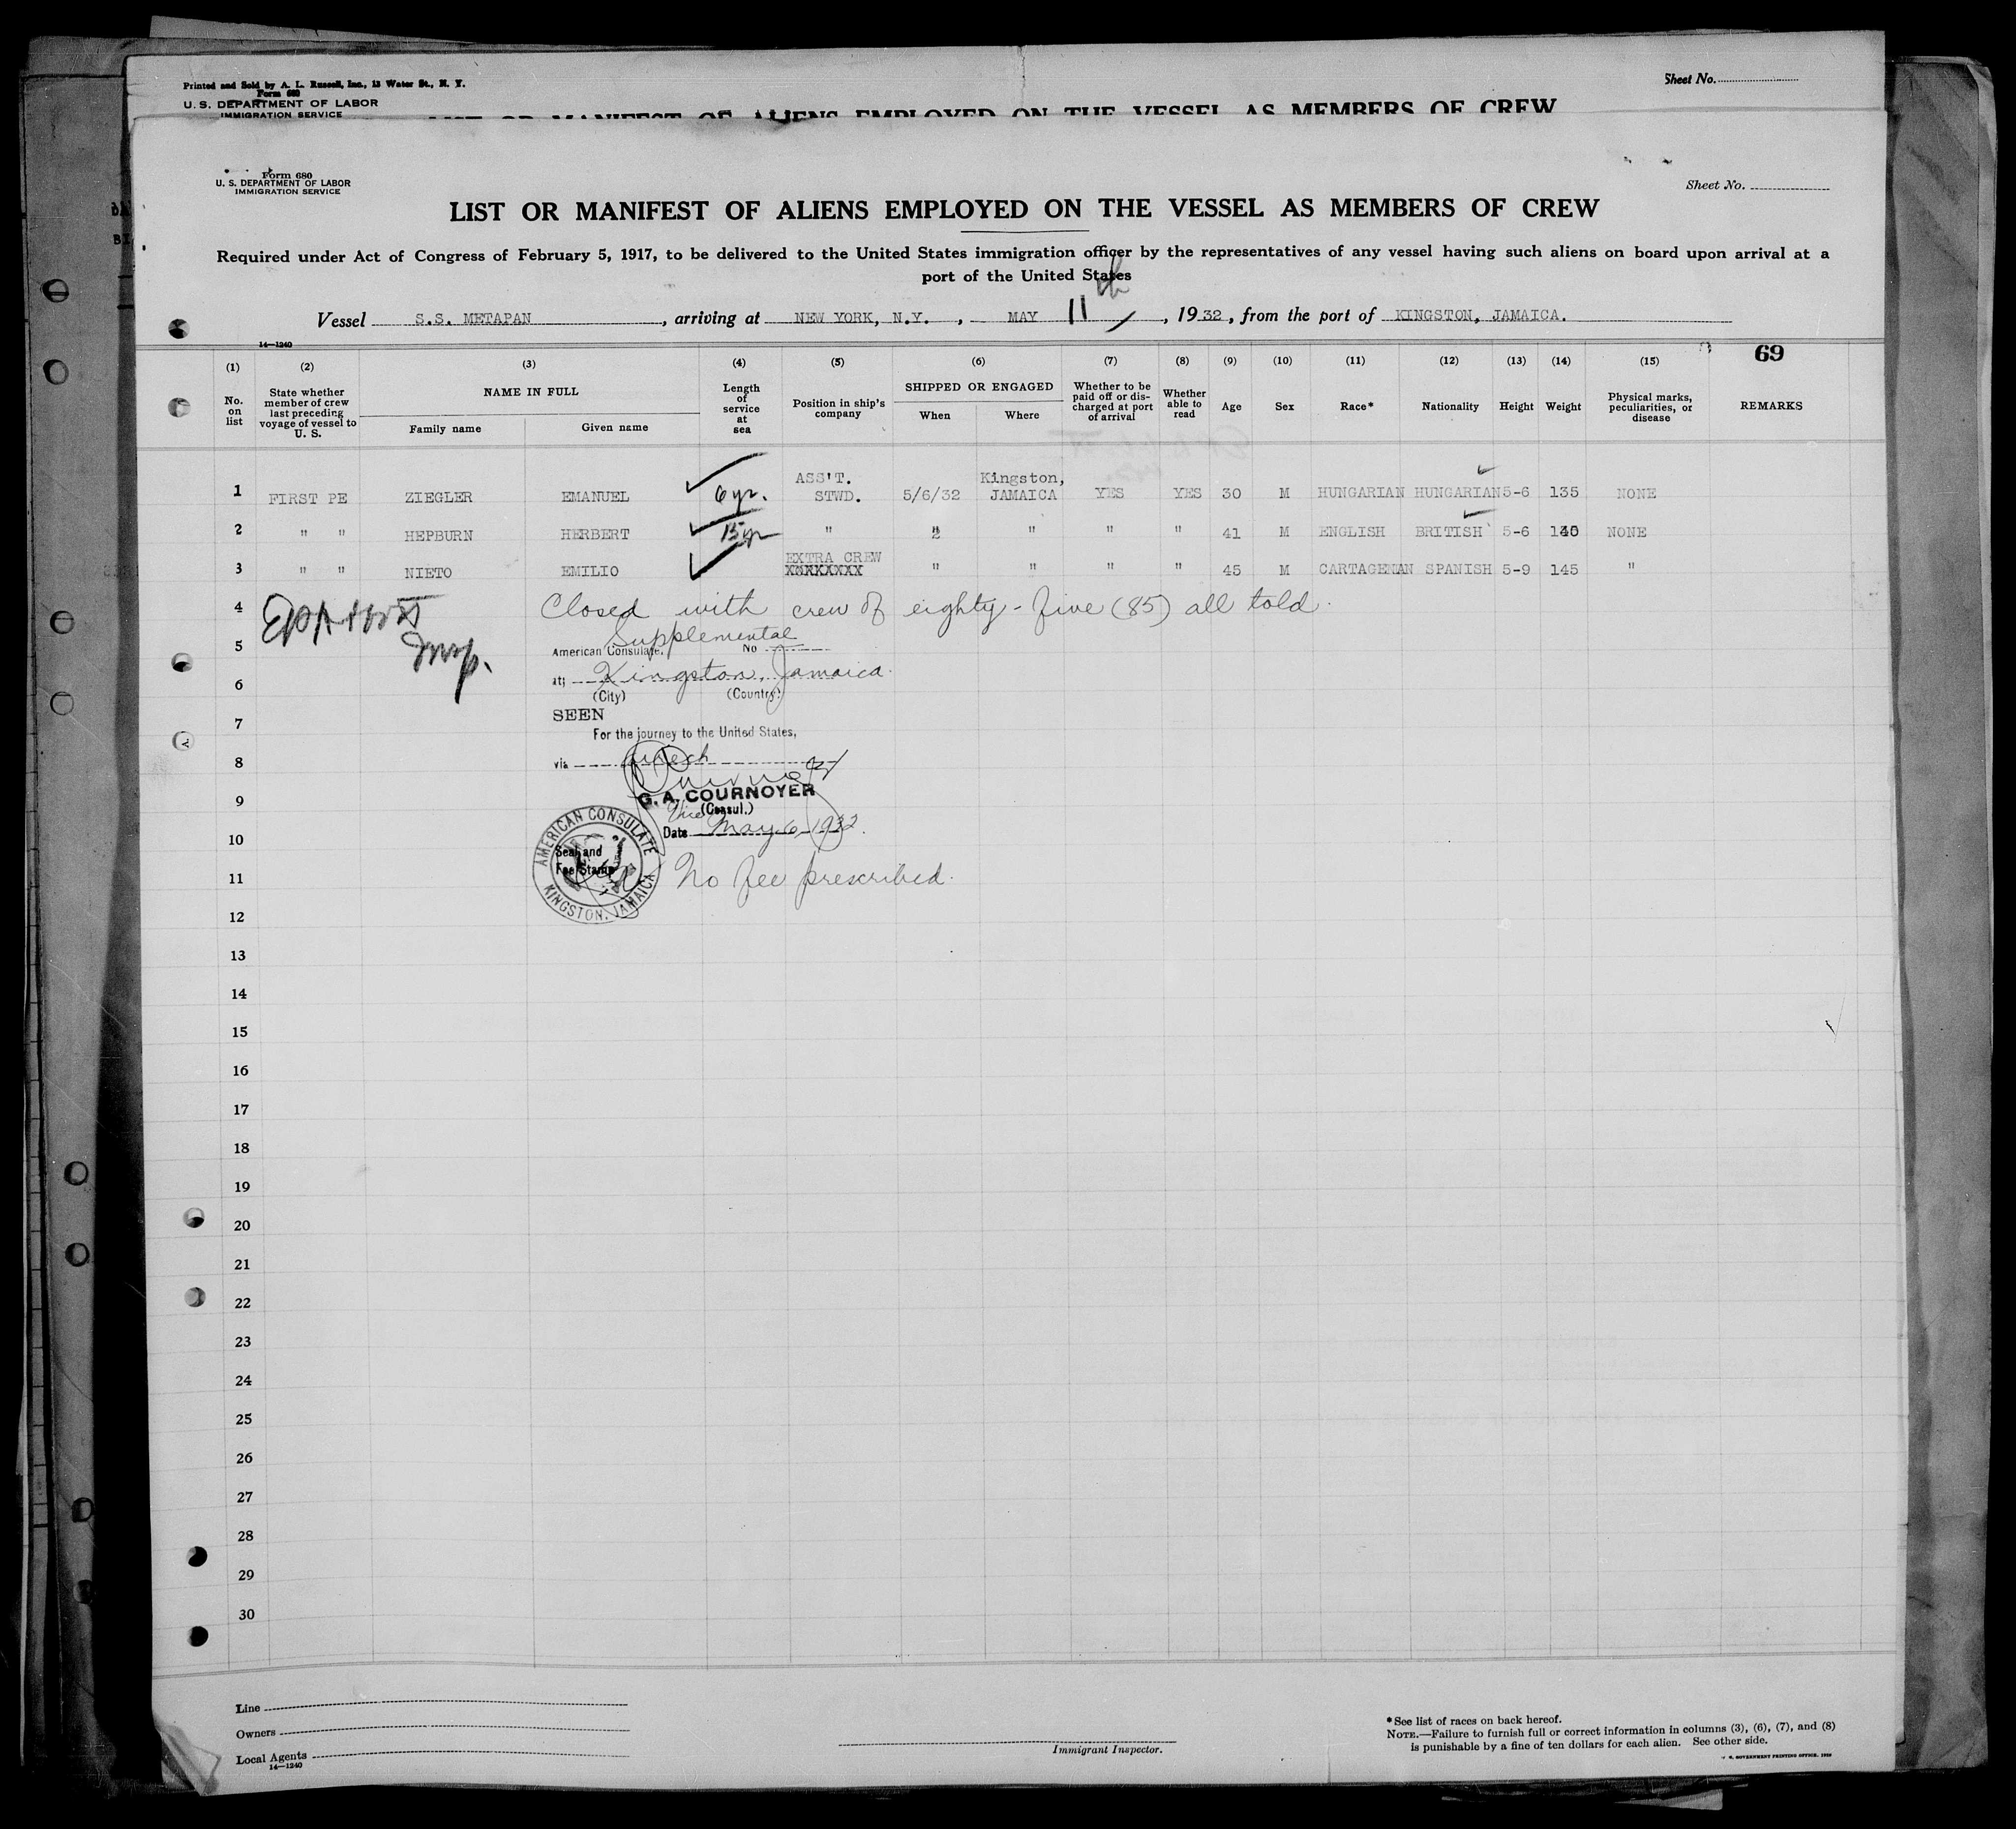 Printed and Sold by A. L. Russell, Inc., 13 Water St., N. Y.
Form 680
U. S. DEPARTMENT OF LABOR
IMMIGRATION SERVICE
Sheet No.
LIST OR MANIFEST OF ALIENS EMPLOYED ON THE VESSEL AS MEMBERS OF CREW
Form 680
U. S. DEPARTMENT OF LABOR
IMMIGRATION SERVICE
Sheet No.
LIST OR MANIFEST OF ALIENS EMPLOYED ON THE VESSEL AS MEMBERS OF CREW
Required under Act of Congress of February 5, 1917, to be delivered to the United States immigration officer by the representatives of any vessel having such aliens on board upon arrival at a
port of the United States
Vessel S.S. METAPAN, arriving at NEW YORK, N.Y., MAY 11th, 1932, from the port of KINGSTON, JAMAICA.
14—1240
69
(1) (2) (3) (4) (5) (6) (7) (8) (9) (10) (11) (12) (13) (14) (15)
No. on list
State whether member of crew last preceding voyage of vessel to U. S.
NAME IN FULL
Family name
Given name
Length of service at sea
Position in ship's company
SHIPPED OR ENGAGED
When
Where
Whether to be paid off or discharged at port of arrival
Whether able to read
Age
Sex
Race*
Nationality
Height
Weight
Physical marks, peculiarities, or disease
REMARKS
1 FIRST PE ZIEGLER EMANUEL 6 yr. ASS'T. STWD. 5/6/32 Kingston, JAMAICA YES YES 30 M HUNGARIAN HUNGARIAN 5-6 135 NONE
2 " " HEPBURN HERBERT 15 yr " " " " " 41 M ENGLISH BRITISH 5-6 140 NONE
3 " " NIETO EMILIO EXTRA CREW XXXXXXXX " " " " 45 M CARTAGENAN SPANISH 5-9 145 "
4 Closed with crew of eighty-five (85) all told.
Insp.
5 Supplemental
American Consulate, No
6 at Kingston, Jamaica.
(City) (Country)
7 SEEN
For the journey to the United States,
8 via
9 G. A. COURNOYER
Vice (Consul.)
10 Date May 6, 1932.
AMERICAN CONSULATE
KINGSTON, JAMAICA
Seal and
Fee Stamp
11 No fee prescribed.
12
13
14
15
16
17
18
19
20
21
22
23
24
25
26
27
28
29
30
Line
Owners
Local Agents
14—1240
Immigrant Inspector.
*See list of races on back hereof.
NOTE.—Failure to furnish full or correct information in columns (3), (6), (7), and (8)
is punishable by a fine of ten dollars for each alien. See other side.